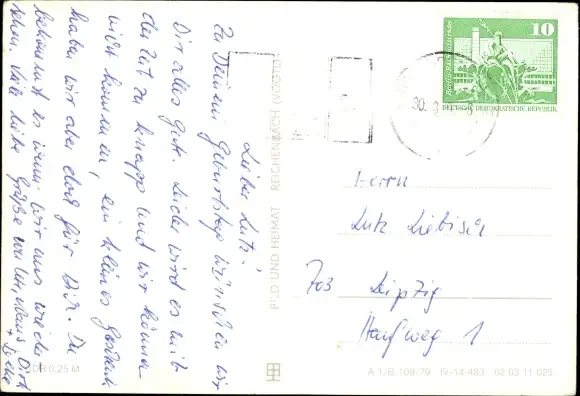 Lieber Lutz!
Zu Deinem Geburtstag wünschen wir
Dir alles Gute. Leider wird es mit
der Zeit zu knapp und wir können
nicht kommen, ein kleines Geschenk
haben wir aber doch für Dich. Du
bekommst es wenn wir uns wieder
sehen. Viele liebe Grüße
Dirk
DDR 0,25 M
BILD UND HEIMAT REICHENBACH (VOGTL)
10
DEUTSCHE DEMOKRATISCHE REPUBLIK
30.
Herrn
Lutz Liebisch
703 Leipzig
Hanfweg 1
A 1/B 109/79 IV-14-483 02 03 11 025